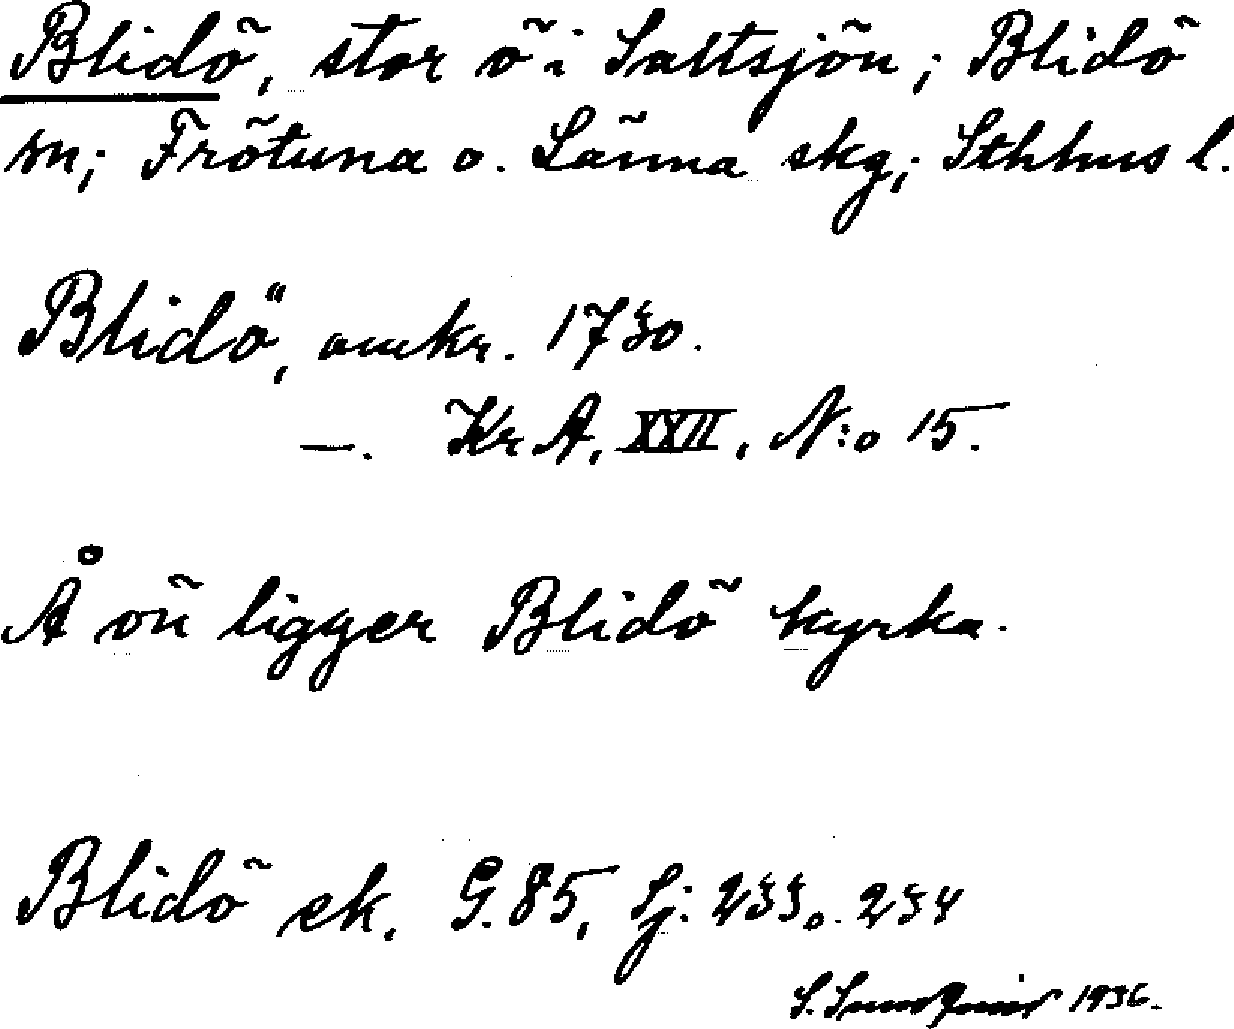 Blidö, stor ö i Saltsjön; Blidö
sn; Frötuna o. Länna skg; Sthlms l.
Blidö, omkr. 1730.
—. Kr A, XXII, N:o 15.
Å ön ligger Blidö kyrka.
Blidö ek. G. 85, Sj: 233 o. 234
S. 1936.